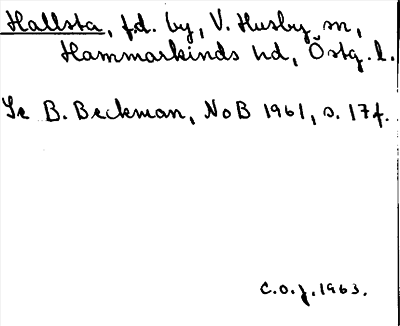 Hallsta, f.d. by, V. Husby sn,
Hammarkinds hd, Östg. l.
Se B. Beckman, NoB 1961, s. 17f.
C.O.J. 1963.